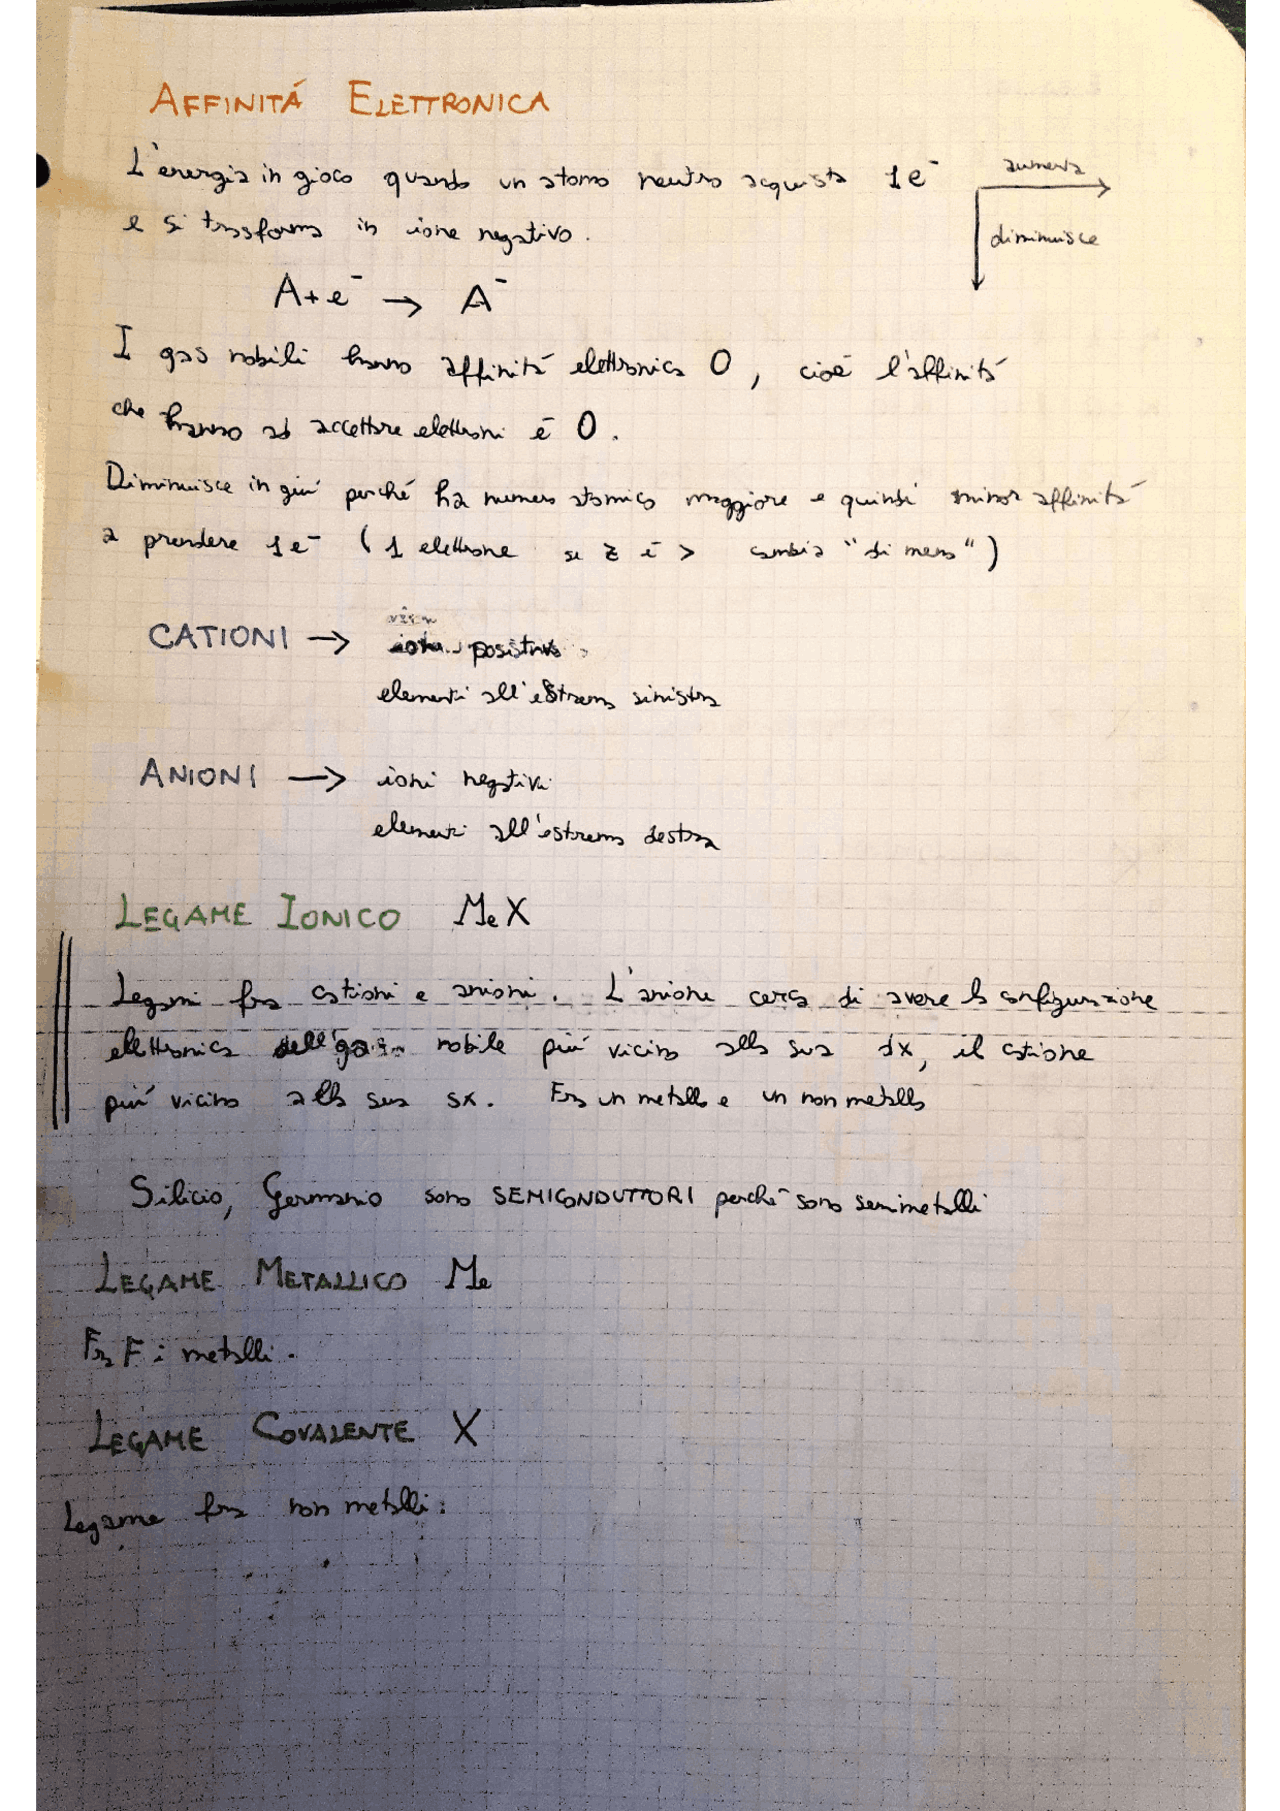 AFFINITÁ ELETTRONICA
L'energia in gioco quando un atomo neutro acquista 1e⁻
aumenta
e si trasforma in ione negativo.
diminuisce
A + e⁻ → A⁻
I gas nobili hanno affinitá elettronica 0, cioé l'affinitá
che hanno ad accettare elettroni é 0.
Diminuisce in giú perché ha numero atomico maggiore e quindi minor affinitá
a prendere 1e⁻ (1 elettrone se z é > cambia "di meno")
CATIONI → ioni positivi
elementi all'estrema sinistra
ANIONI → ioni negativi
elementi all'estrema destra
LEGAME IONICO MeX
Legami fra cationi e anioni. L'anione cerca di avere la configurazione
elettronica dell'gas nobile piú vicino alla sua dx, il catione
piú vicino alla sua sx. Fra un metallo e un non metallo
Silicio, Germanio sono SEMICONDUTTORI perché sono semimetalli
LEGAME METALLICO Me
Fra F i metalli.
LEGAME COVALENTE X
Legame fra non metalli.